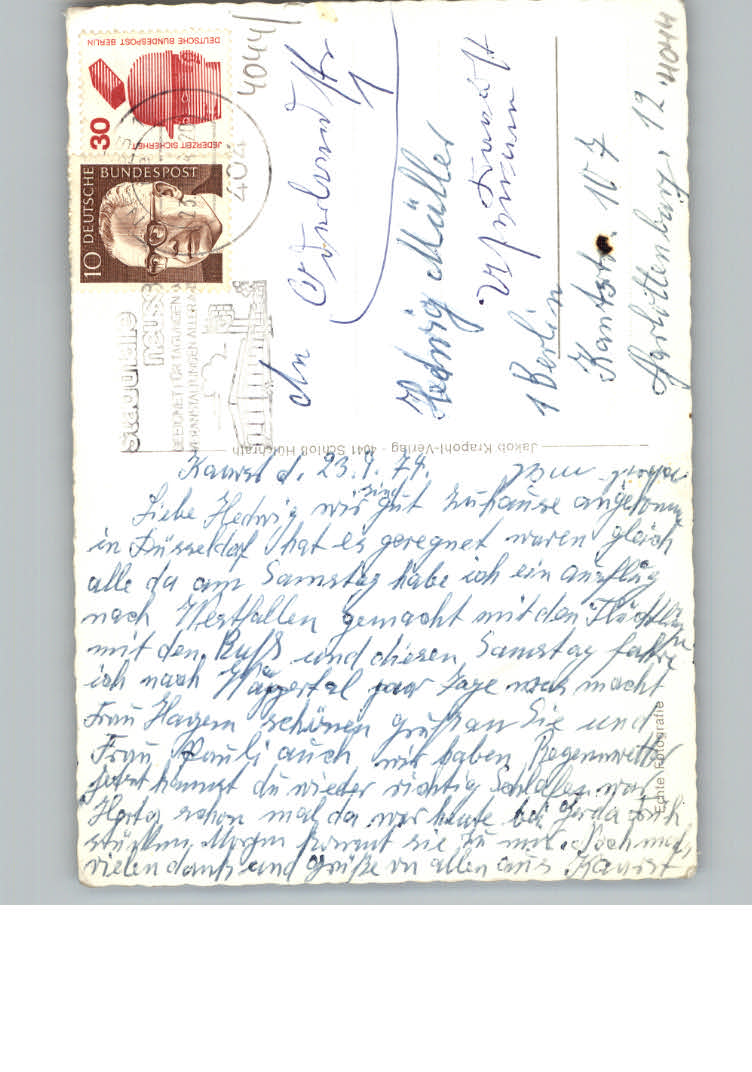 Kaarst d. 23.9.74.
Liebe Hedwig wir sind gut zuhause angekomm
in Düsseldorf hat es geregnet waren gleich
alle da am Samstag habe ich ein ausflug
nach Westfallen gemacht mit den
mit den Buss und diesen Samstag fahre
ich nach Wuppertal paar Tage was macht
Frau Hagem schönen grußan Sie und
Frau Pauli auch wir haben Regenwetter
jetzt kannst du wieder richtig Schlafen war
Herta schon mal da war heute bei Gerda früh
stücken Morgen kommt sie zu mir. Nochmals
vielen dank und Grüße von allen aus Kaarst
An
Hedwig Müller
1 Berlin
Kantstr. 107
Charlottenburg. 12
4044
4044
DEUTSCHE BUNDESPOST BERLIN
30
JEDERZEIT SICHERHEIT
DEUTSCHE BUNDESPOST
10
404
stadthalle
neuss
GEEIGNET FÜR TAGUNGEN U
VERANSTALTUNGEN ALLER ART
Jakob Krapohl-Verlag - 4041 Schloß Hülchrath
Echte Fotografie